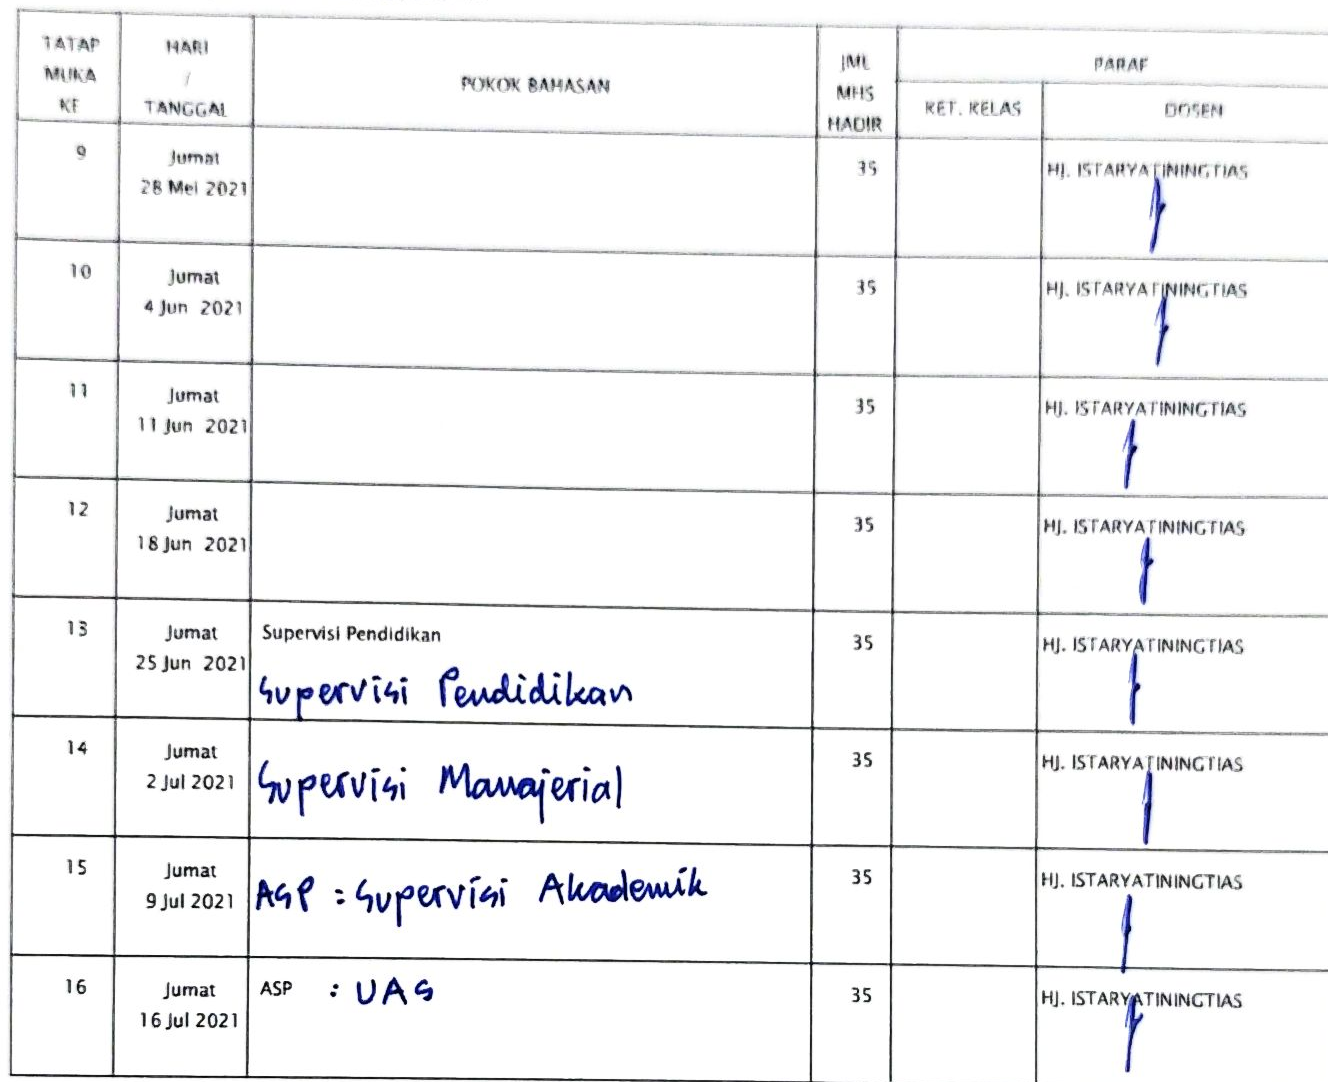 TATAP MUKA KE
HARI / TANGGAL
POKOK BAHASAN
JML MHS HADIR
PARAF
KET. KELAS
DOSEN
9
Jumat
28 Mei 2021
35
HJ. ISTARYATININGTIAS
10
Jumat
4 Jun 2021
35
HJ. ISTARYATININGTIAS
11
Jumat
11 Jun 2021
35
HJ. ISTARYATININGTIAS
12
Jumat
18 Jun 2021
35
HJ. ISTARYATININGTIAS
13
Jumat
25 Jun 2021
Supervisi Pendidikan
Supervisi Pendidikan
35
HJ. ISTARYATININGTIAS
14
Jumat
2 Jul 2021
Supervisi Manajerial
35
HJ. ISTARYATININGTIAS
15
Jumat
9 Jul 2021
ASP : Supervisi Akademik
35
HJ. ISTARYATININGTIAS
16
Jumat
16 Jul 2021
ASP : UAS
35
HJ. ISTARYATININGTIAS